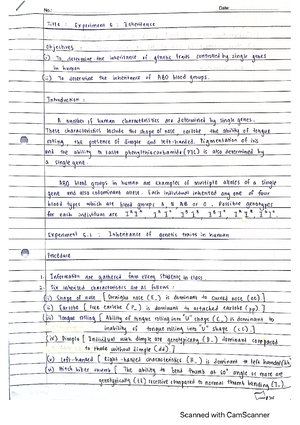 No.:
Date:
Title : Experiment 6 : Inheritance
Objectives
(i) To determine the inheritance of genetic traits controlled by single genes
in human
(ii) To determine the inheritance of ABO blood groups.
Introduction :
A number of human characteristics are determined by single genes.
These characteristics include the shape of nose, earlobe, the ability of tongue
rolling, the presence of dimple and left-handed. Pigmentation of iris
and the ability to taste phenylthiocarbamide (PTC) is also determined by
a single gene.
ABO blood groups in human are examples of multiple alleles of a single
gene, and also codominant allele. Each individual inherited any one of four
blood types which are blood groups A, B, AB or O. Possible genotypes
for each individual are
Experiment 6.1 : Inheritance of genetic traits in human
Procedure
1. Information are gathered from every students in class.
2. Six inherited characteristics are as follows :
(i) Shape of nose [ Straight nose (E_) is dominant to curved nose (ee)]
(ii) Earlobe [ Free earlobe (P_) is dominant to attached earlobe (pp).]
(iii) Tongue rolling [ Ability of tongue rolling into "U" shape (C_) is dominant to
inability of tongue rolling into "U" shape (cc).]
(iv) Dimple [ Individual with dimple are genotypically (D_) dominant compared
to those without dimple (dd).]
(v) Left-handed [ Right-handed characteristics (B_) is dominant to left handed (bb)
(vi) Hitch hiker thumb [ The ability to bend thumb at 60° angle or more are
genotypically (tt) recessive compared to normal thumb bending (T_).
Scanned with CamScanner